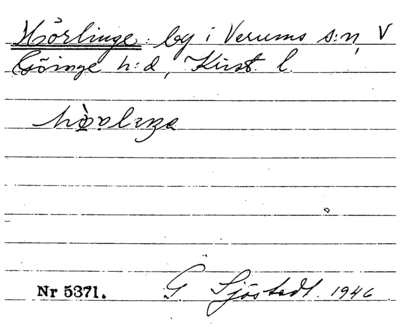 Hörlinge by i Verums s:n, V
Göinge h:d, Krist. l.
Nr 5371. G Sjöstedt. 1946